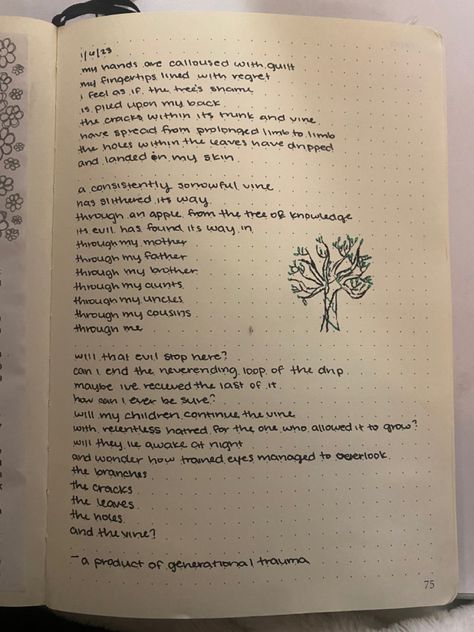 1/6/23
my hands are calloused with guilt
my fingertips lined with regret
i feel as if the tree's shame
is piled upon my back
the cracks within its trunk and vine
have spread from prolonged limb to limb
the holes within the leaves have dripped
and landed on my skin
a consistently sorrowful vine
has slithered its way
through an apple from the tree of knowledge
its evil has found its way in
through my mother
through my father
through my brother
through my aunts
through my uncles
through my cousins
through me
will that evil stop here?
can i end the neverending loop of the drip
maybe ive recieved the last of it
how can i ever be sure?
will my children continue the vine
with relentless hatred for the one who allowed it to grow?
will they lie awake at night
and wonder how trained eyes managed to overlook
the branches
the cracks
the leaves
the holes
and the vine?
- a product of generational trauma
75